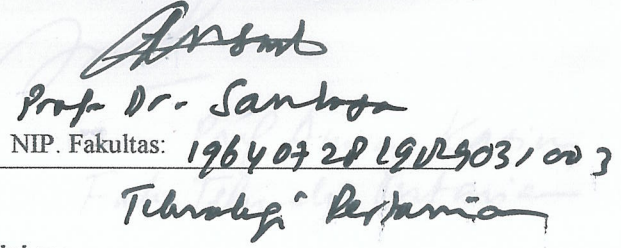 Prof. Dr. Santosa
NIP. Fakultas: 19640728 198903 1 003
Teknologi Pertanian